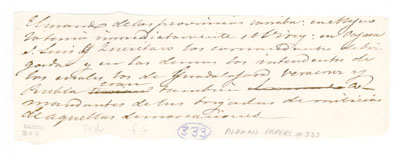 El mando de las provincias variaba: en Mexico
estaba inmediatamente al Virey: en Oajaca
S. Luis y Querétaro los comandantes de bri-
gada: y en las demas los intendentes de
los cuales los de Guadalajara, Veracruz y
Puebla eran tambien co-
mandantes de las brigadas de milicias
de aquellas demarcaciones.
333
ALAMAN PAPERS #333